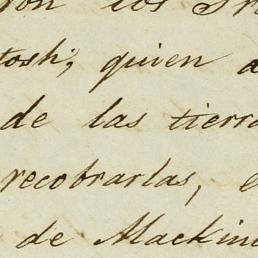 ron los Sr
tosh, quien a
de las tierra
recobrarlas, e
de Mackin